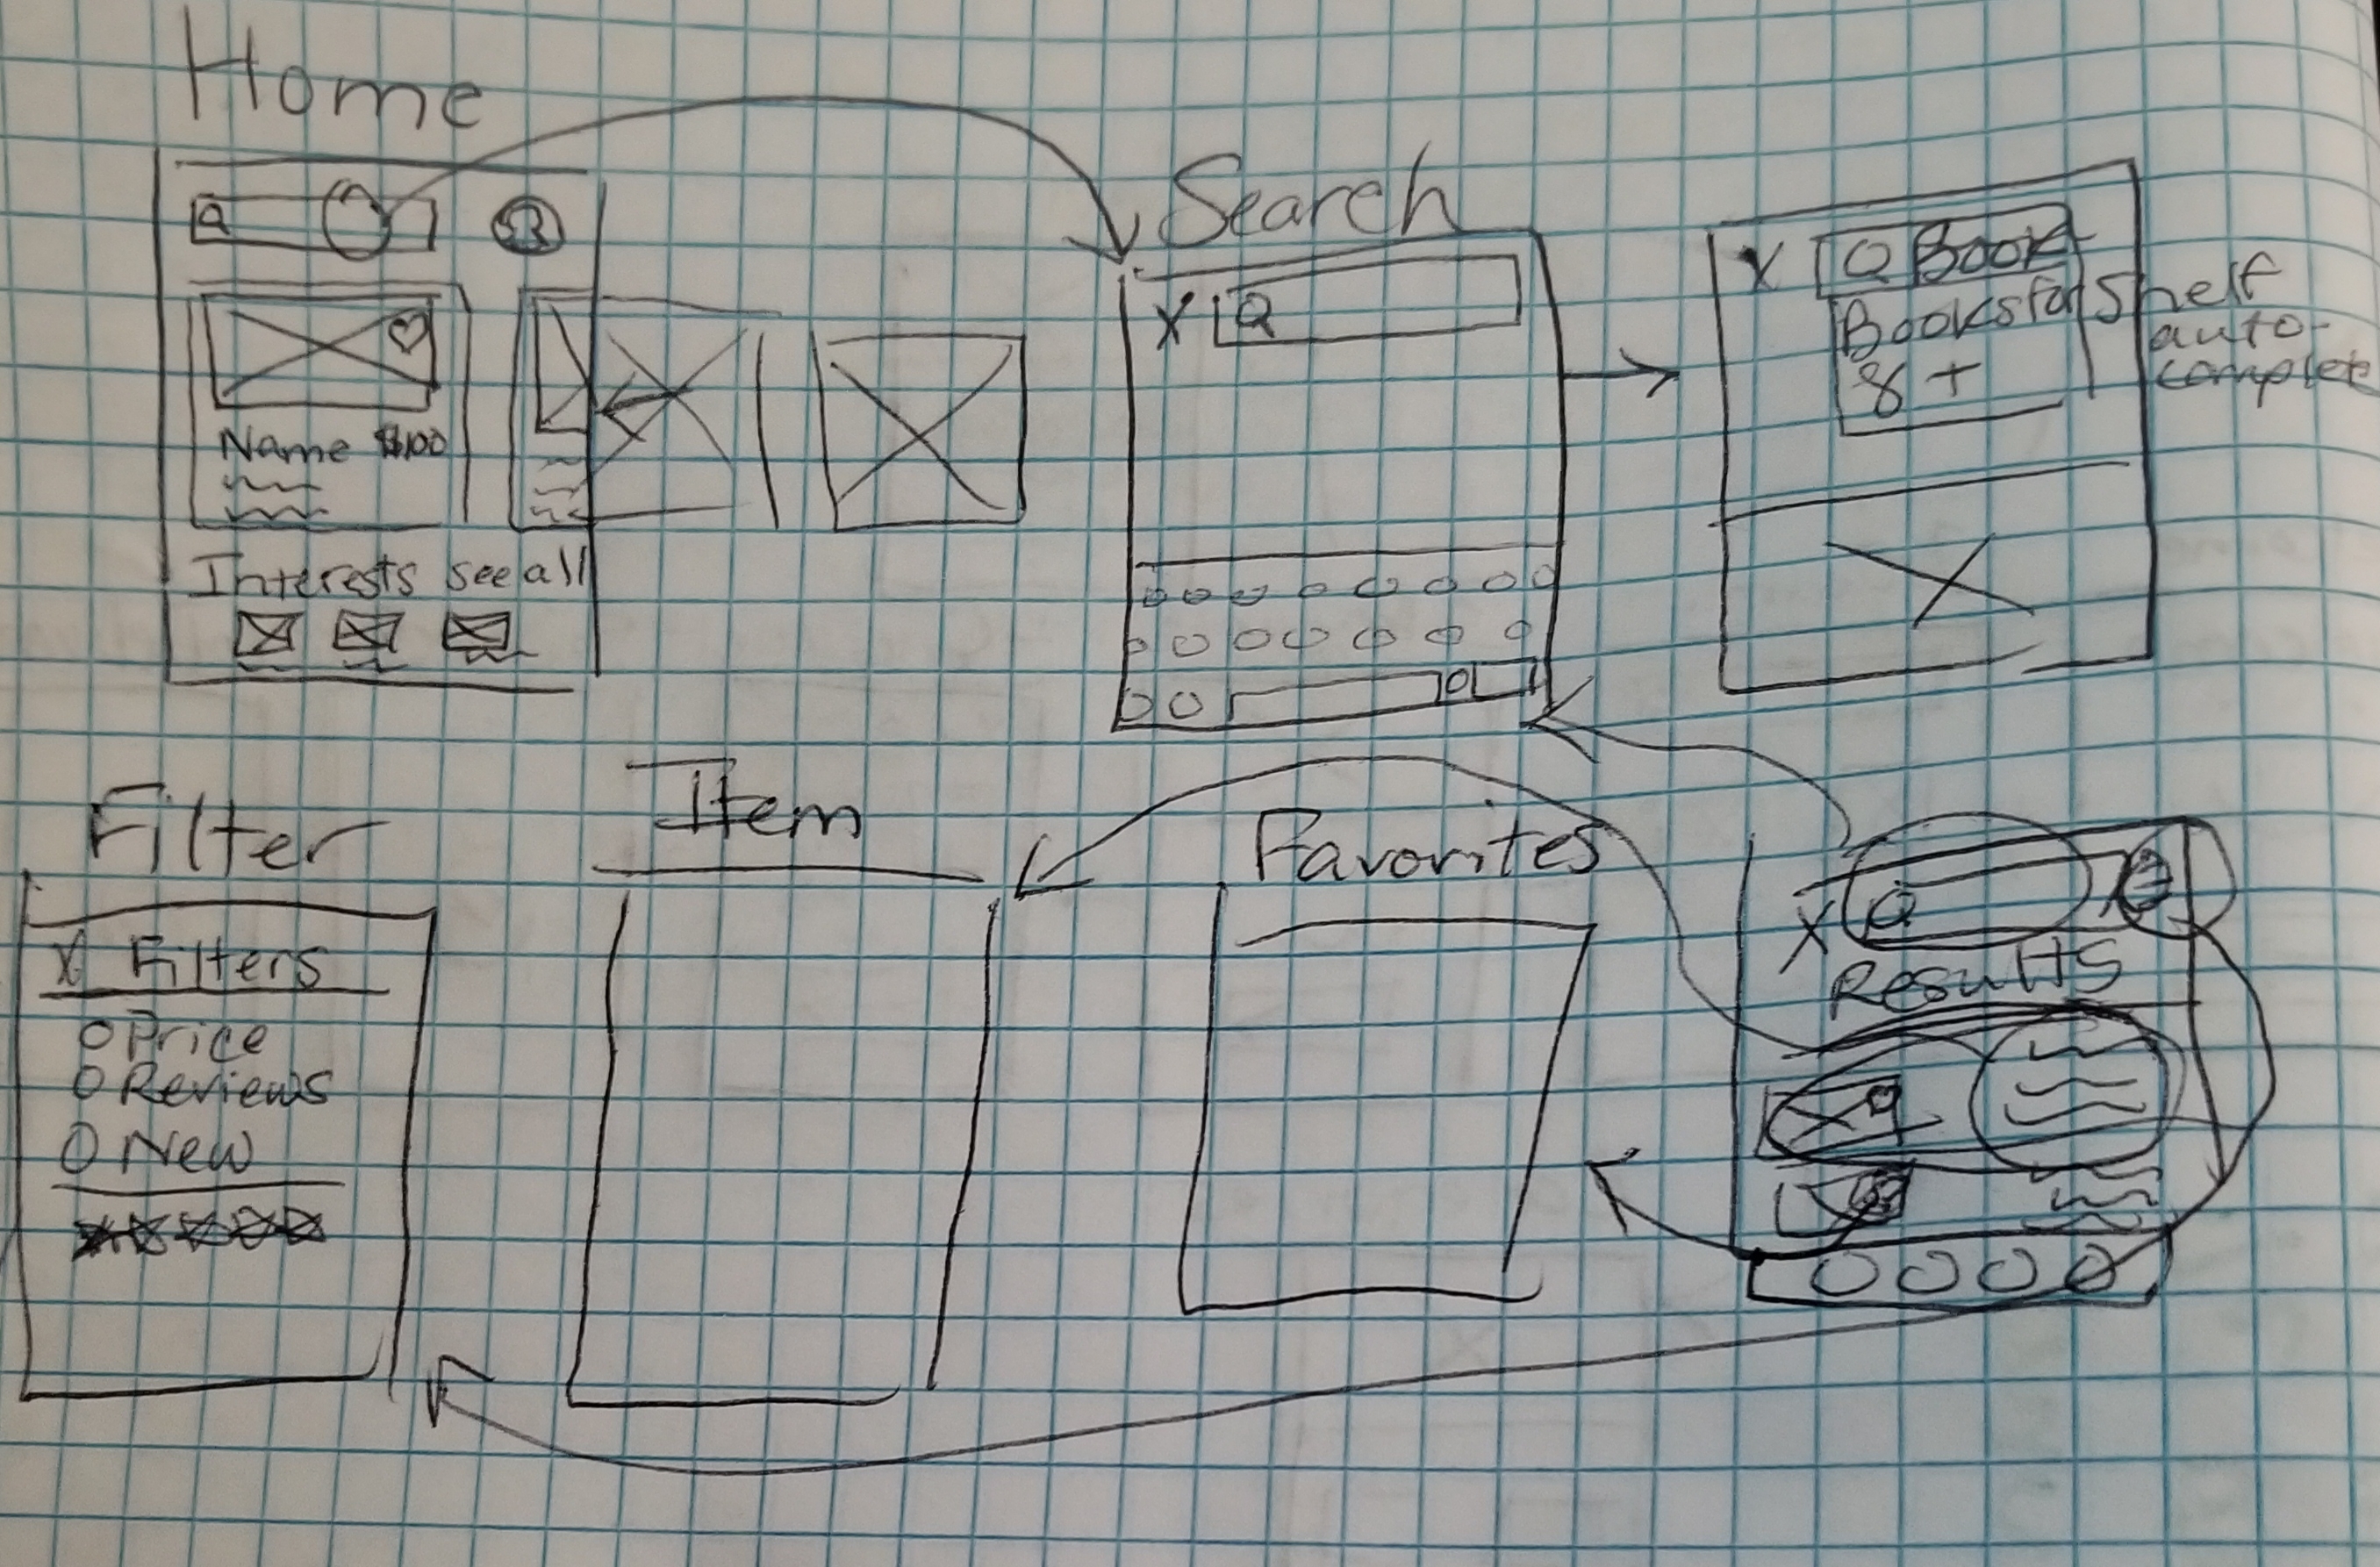 Home
Name $100
Interests see all
Search
X
X Book
Books for Shelf
8+
auto-
complete
Filter
X Filters
Price
Reviews
New
Item
Favorites
X
Results